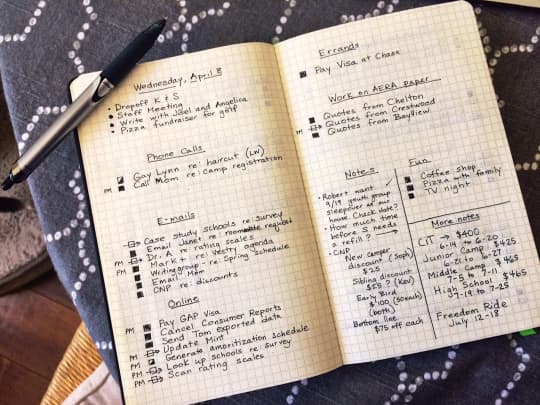 Wednesday, April 8
Dropoff K & S
Staff Meeting
Write with Joel and Angelica
Pizza fundraiser for golf
Phone Calls
Gay Lynn re: haircut (LW)
PM Call Mom re: camp registration
E-mails
Case study schools re: survey
PM Email Janet re: roommate request
Dr. A re: rating scales
PM Mark re: Vestry agenda
Writing group re: Spring Schedule
Email Mom
CNP re: discounts
Online
PM Pay GAP Visa
Cancel Consumer Reports
Send Tom exported data
PM Update Mint
PM Generate amortization schedule
PM Look up schools re: survey
PM Scan rating scales
Errands
Pay Visa at Chase
Work on AERA paper
Quotes from Chelton
PM Quotes from Crestwood
Quotes from Bayview
Notes
Robert want
9/19 youth group
sleepover at our
house. Check date?
How much time
before S needs
a refill?
CNP
New camper
discount (Soph)
$25
Sibling discount
$25? (Kev)
Early Bird
$100 (50 each)
(both)
Bottom line
$75 off each
Fun
Coffee shop
Pizza with family
TV night
More notes
CIT → $400
6-14 to 6-20
Junior Camp $425
6-21 to 6-27
Middle Camp $465
7-5 to 7-11
High School $465
7-19 to 7-25
Freedom Ride
July 12-18